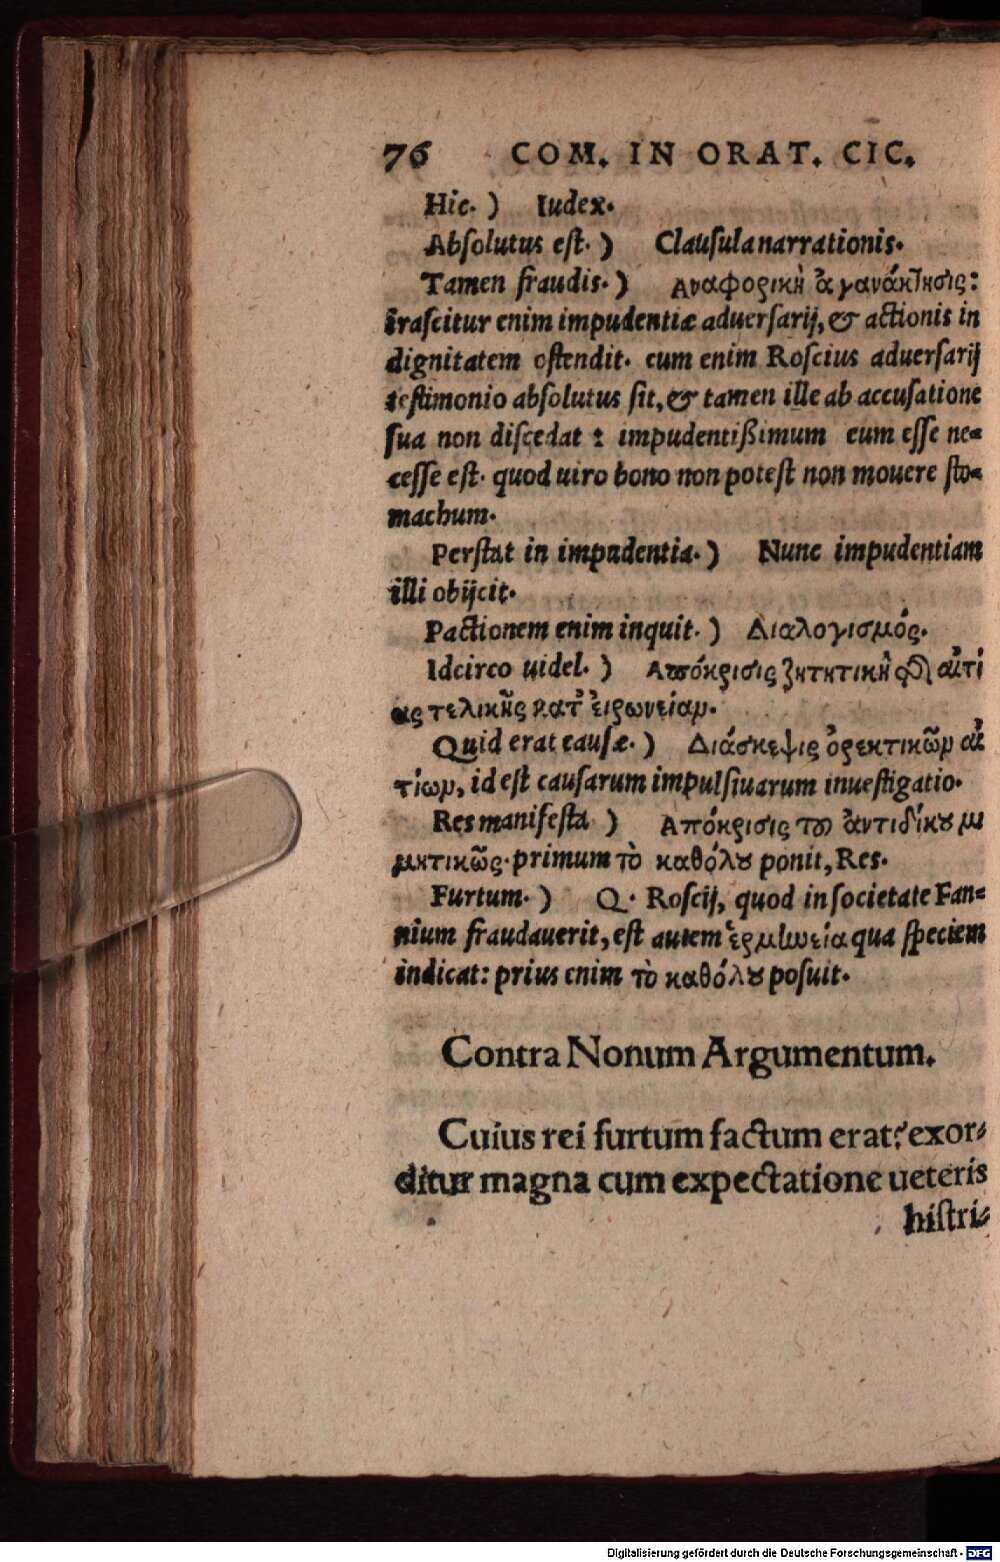 76 COM. IN ORAT. CIC.
Hic. ) Iudex.
Absolutus est. ) Clausula narrationis.
Tamen fraudis. ) Αναφορικὴ ἀγανάκτησις:
irascitur enim impudentiæ aduersarij, & actionis in
dignitatem ostendit. cum enim Roscius aduersarij
testimonio absolutus sit, & tamen ille ab accusatione
sua non discedat: impudentißimum eum esse ne=
cesse est. quod uiro bono non potest non mouere sto=
machum.
Perstat in impudentia. ) Nunc impudentiam
illi obijcit.
Pactionem enim inquit. ) Διαλογισμός.
Idcirco uidel. ) Απόκρισις ζητητικὴ φλ αἰτί
ας τελικῆς κατ' εἰρωνείαν.
Quid erat causæ. ) Διάσκεψις ὀρεκτικῶν αἰ
τίων, id est causarum impulsiuarum inuestigatio.
Res manifesta ) Απόκρισις τοῦ ἀντιδίκου μι
μητικῶς. primum τὸ καθόλου ponit, Res.
Furtum. ) Q. Roscij, quod in societate Fan=
nium fraudauerit, est autem ἑρμηνεία qua speciem
indicat: prius enim τὸ καθόλου posuit.
Contra Nonum Argumentum.
Cuius rei furtum factum erat? exor=
ditur magna cum expectatione ueteris
histri=
Digitalisierung gefördert durch die Deutsche Forschungsgemeinschaft - DFG